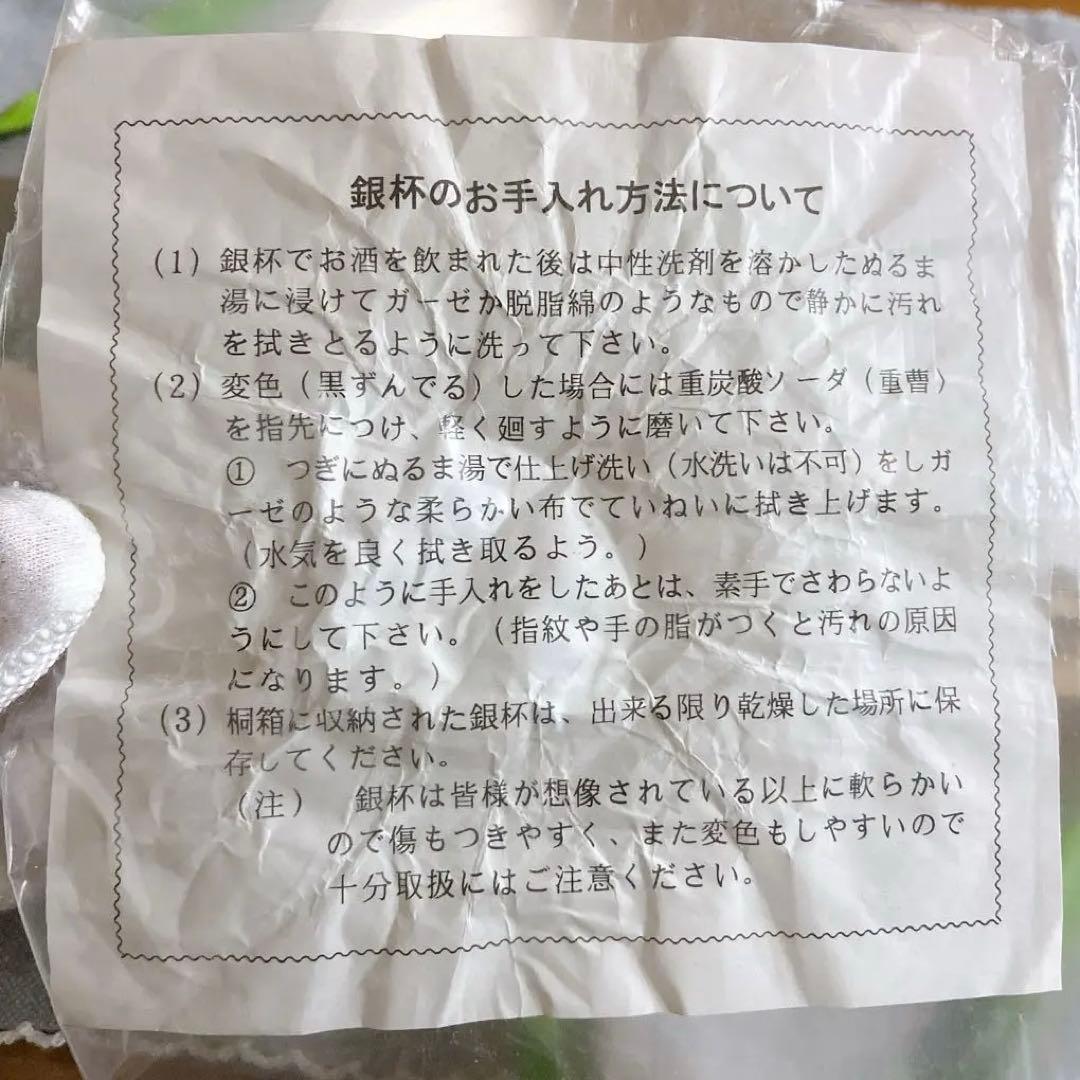 銀杯のお手入れ方法について
(1) 銀杯でお酒を飲まれた後は中性洗剤を溶かしたぬるま
湯に浸けてガーゼか脱脂綿のようなもので静かに汚れ
を拭きとるように洗って下さい。
(2) 変色（黒ずんでる）した場合には重炭酸ソーダ（重曹）
を指先につけ、軽く廻すように磨いて下さい。
① つぎにぬるま湯で仕上げ洗い（水洗いは不可）をしガ
ーゼのような柔らかい布でていねいに拭き上げます。
（水気を良く拭き取るよう。）
② このように手入れをしたあとは、素手でさわらないよ
うにして下さい。（指紋や手の脂がつくと汚れの原因
になります。）
(3) 桐箱に収納された銀杯は、出来る限り乾燥した場所に保
存してください。
（注） 銀杯は皆様が想像されている以上に軟らかい
ので傷もつきやすく、また変色もしやすいので
十分取扱にはご注意ください。